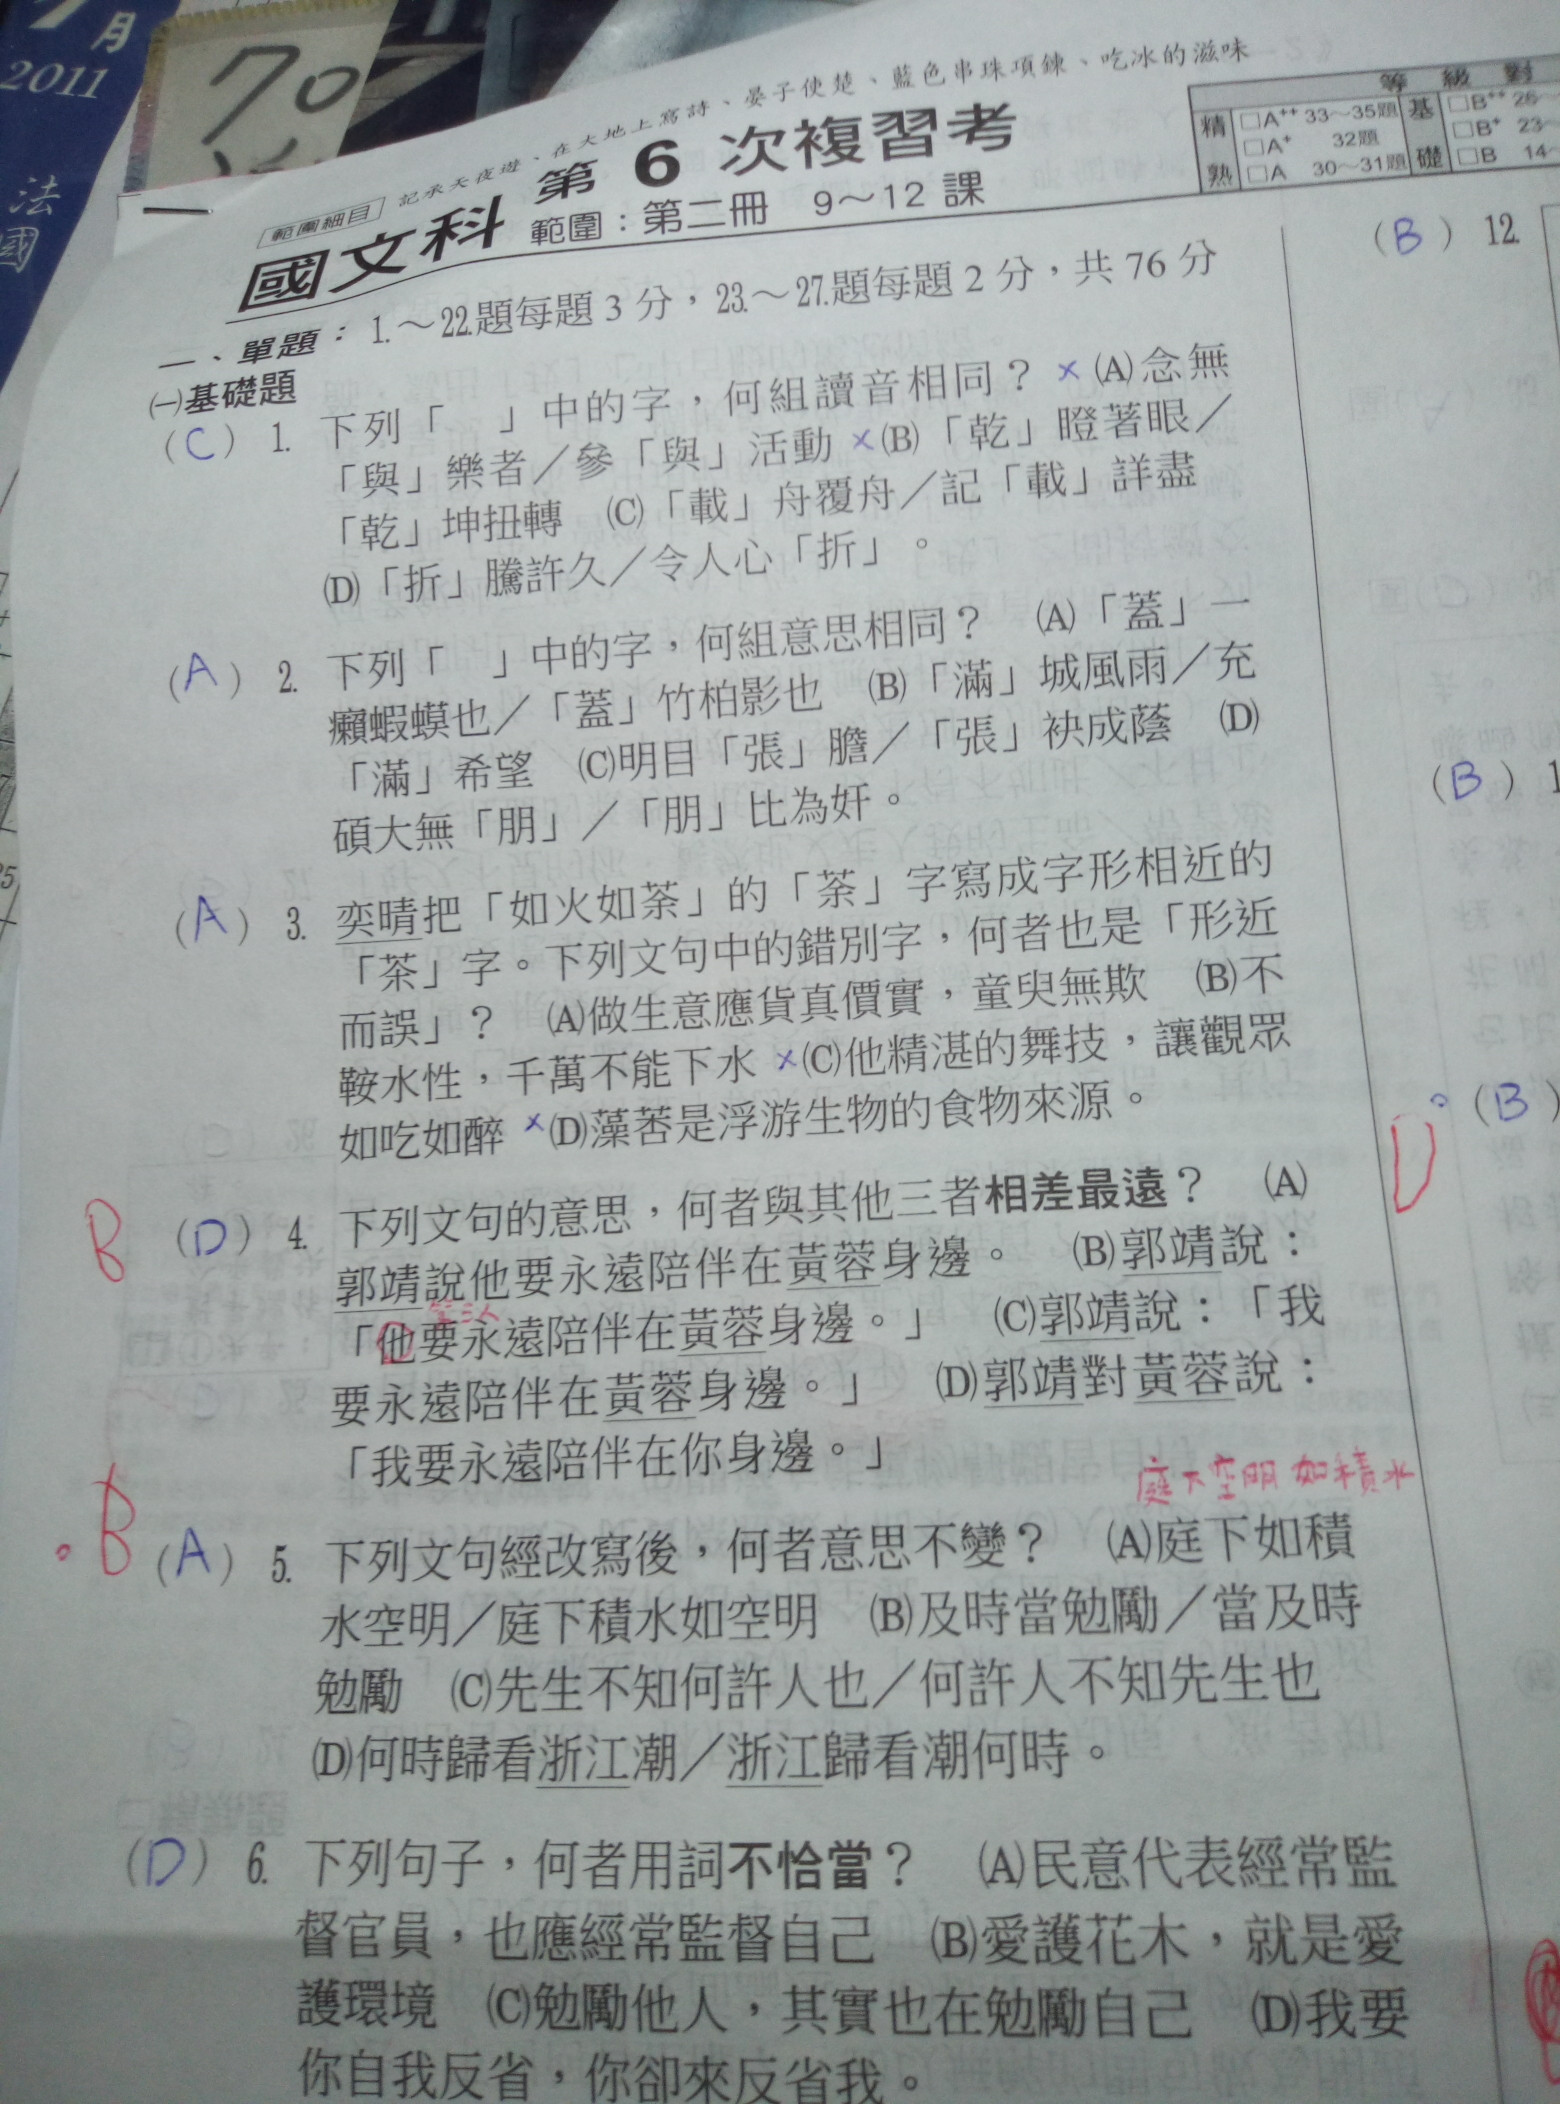 7月
2011
法
國
70
範圍細目 記承天夜遊、在大地上寫詩、晏子使楚、藍色串珠項鍊、吃冰的滋味
國文科 第 6 次複習考
範圍：第二冊 9～12 課
等 級 對
精 □A⁺⁺ 33～35題 基 □B⁺⁺ 26～
□A⁺ 32題 □B⁺ 23～
熟 □A 30～31題 礎 □B 14～
一、單題：1.～22.題每題 3 分，23.～27.題每題 2 分，共 76 分
㈠基礎題
（C）1. 下列「　」中的字，何組讀音相同？ × (A)念無
「與」樂者／參「與」活動 × (B)「乾」瞪著眼／
「乾」坤扭轉 (C)「載」舟覆舟／記「載」詳盡
(D)「折」騰許久／令人心「折」。
（A）2. 下列「　」中的字，何組意思相同？ (A)「蓋」一
癩蝦蟆也／「蓋」竹柏影也 (B)「滿」城風雨／充
「滿」希望 (C)明目「張」膽／「張」袂成蔭 (D)
碩大無「朋」／「朋」比為奸。
（A）3. 奕晴把「如火如荼」的「荼」字寫成字形相近的
「茶」字。下列文句中的錯別字，何者也是「形近
而誤」？ (A)做生意應貨真價實，童臾無欺 (B)不
鞍水性，千萬不能下水 × (C)他精湛的舞技，讓觀眾
如吃如醉 × (D)藻莕是浮游生物的食物來源。
B （D）4. 下列文句的意思，何者與其他三者相差最遠？ (A)
郭靖說他要永遠陪伴在黃蓉身邊。 (B)郭靖說：
第三人
「他要永遠陪伴在黃蓉身邊。」 (C)郭靖說：「我
要永遠陪伴在黃蓉身邊。」 (D)郭靖對黃蓉說：
「我要永遠陪伴在你身邊。」
庭下空明如積水
B （A）5. 下列文句經改寫後，何者意思不變？ (A)庭下如積
水空明／庭下積水如空明 (B)及時當勉勵／當及時
勉勵 (C)先生不知何許人也／何許人不知先生也
(D)何時歸看浙江潮／浙江歸看潮何時。
（D）6. 下列句子，何者用詞不恰當？ (A)民意代表經常監
督官員，也應經常監督自己 (B)愛護花木，就是愛
護環境 (C)勉勵他人，其實也在勉勵自己 (D)我要
你自我反省，你卻來反省我。
（B）12.
（B）1
（B）